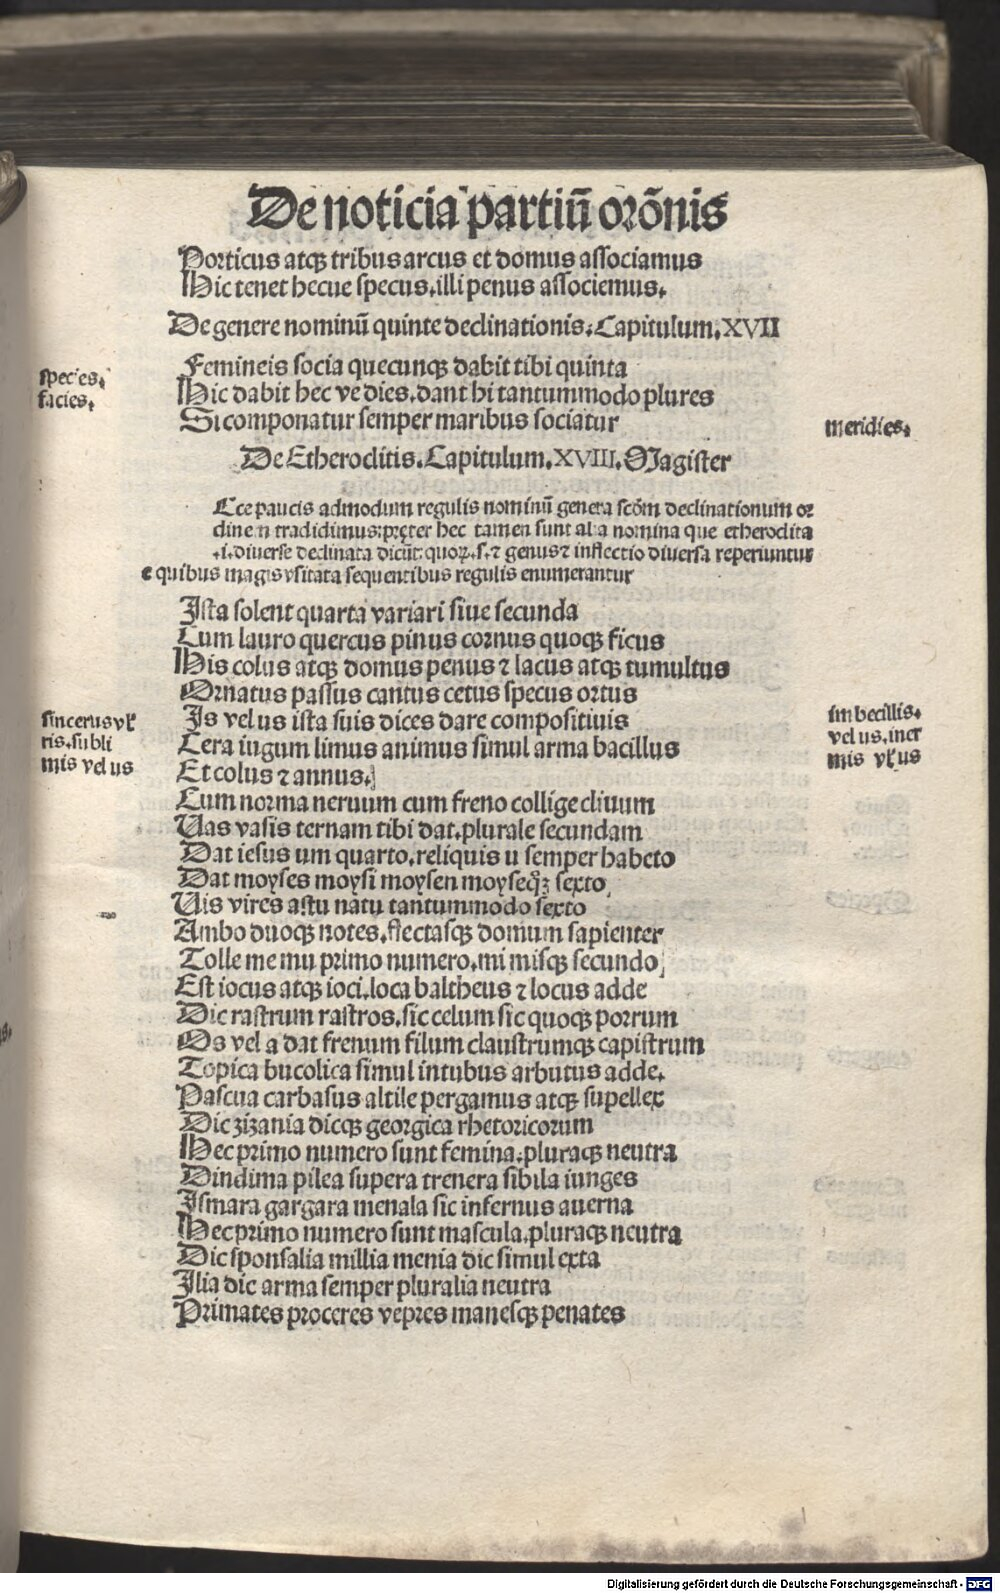 De noticia partiū orōnis
Porticus atqꝫ tribus arcus et domus associamus
Hic tenet hecue specus.illi penus associemus.
De genere nominū quinte declinationis.Capitulum.XVII
Femineis socia quecunqꝫ dabit tibi quinta
species.
Hic dabit hec ve dies.dant hi tantummodo plures
facies.
Si componatur semper maribus sociatur
meridies.
De Etheroclitis.Capitulum.XVIII.Magister
Ecce paucis admodum regulis nominū genera scōm declinationum or
dinem tradidimus:pręter hec tamen sunt alia nomina que etheroclita
.i.diuerse declinata dicūt:quoꝝ.s.⁊ genus⁊ inflectio diuersa reperiuntur
e quibus magis vsitata sequentibus regulis enumerantur
Ista solent quarta variari siue secunda
Cum lauro quercus pinus cornus quoqꝫ ficus
His colus atqꝫ domus penus ⁊ lacus atqꝫ tumultus
Ornatus passus cantus cetus specus ortus
sincerus vł
ris.subli
mis vel us
Is vel us ista suis dices dare compositiuis
Cera iugum limus animus simul arma bacillus
Et colus ⁊ annus.
imbecillis.
vel us.iner
mis vł us
Cum norma neruum cum freno collige cliuum
Uas vasis ternam tibi dat.plurale secundam
Dat iesus um quarto.reliquis u semper habeto
Dat moyses moysi moysen moyseqꝫ sexto
Uis vires astu natu tantummodo sexto
Ambo duoqꝫ notes.flectasqꝫ domum sapienter
Tolle me mu primo numero.mi misqꝫ secundo
Est iocus atqꝫ ioci.loca baltheus ⁊ locus adde
Dic rastrum rastros.sic celum sic quoqꝫ porrum
Os vel a dat frenum filum claustrumqꝫ capistrum
Topica bucolica simul intubus arbutus adde.
Pascua carbasus altile pergamus atqꝫ supellex
Dic zizania dicqꝫ georgica rhetoricorum
Hec primo numero sunt femina.pluraqꝫ neutra
Dindima pilea supera trenera sibila iunges
Ismara gargara menala sic infernus auerna
Hec primo numero sunt mascula.pluraqꝫ neutra
Dic sponsalia millia menia dic simul exta
Ilia dic arma semper pluralia neutra
Primates proceres vepres manesqꝫ penates
Digitalisierung gefördert durch die Deutsche Forschungsgemeinschaft - DFG